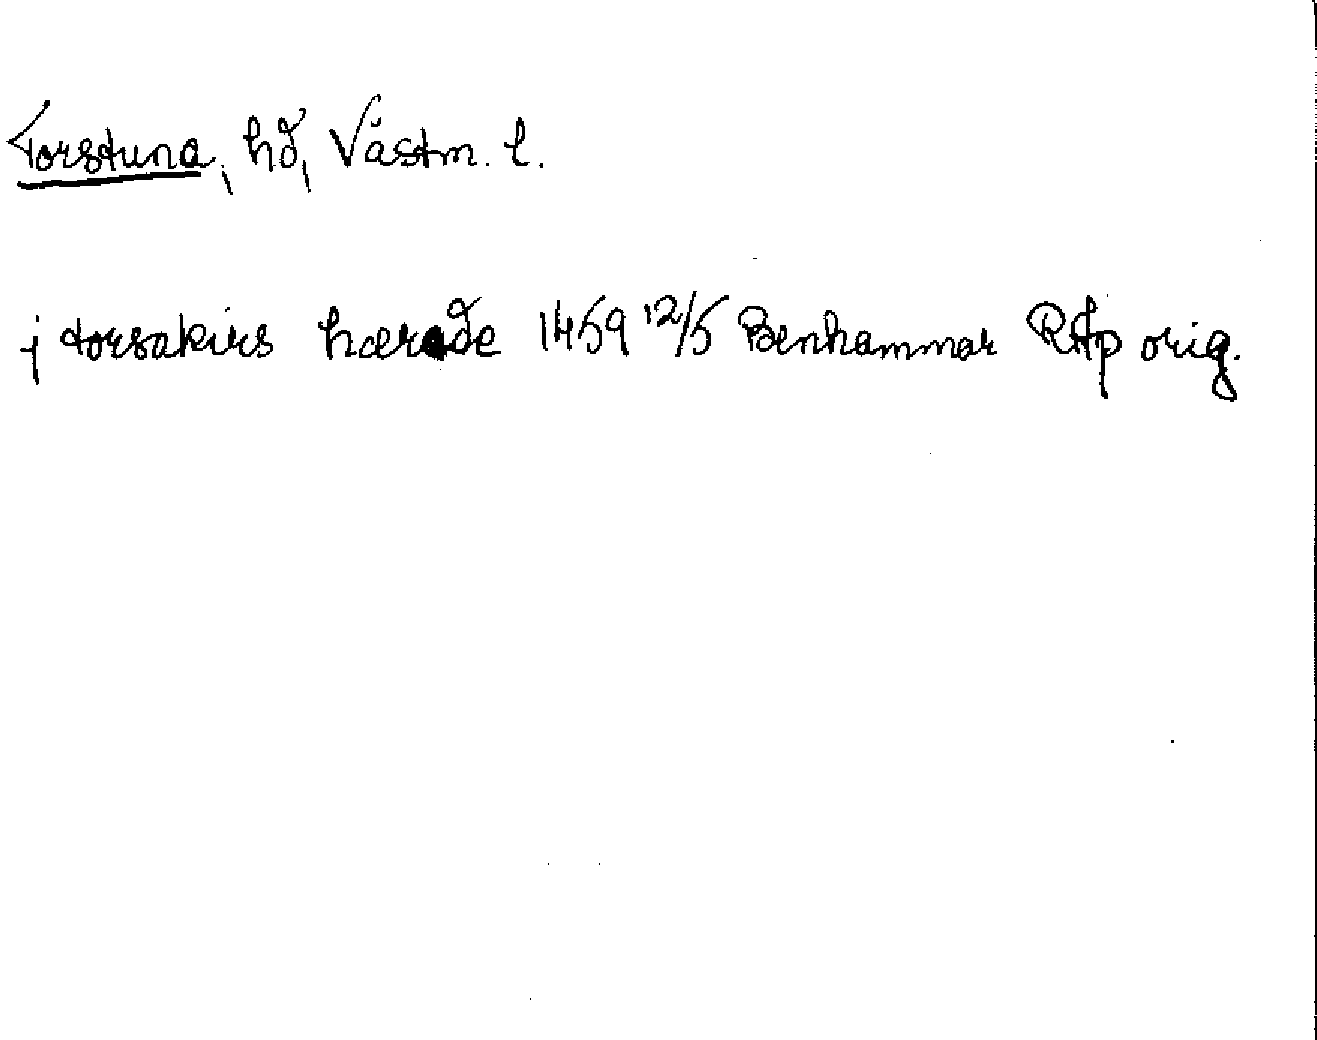 Torstuna, hd, Västm. l.
j torsakirs hærade 1459 12/5 Benhammar RAp orig.